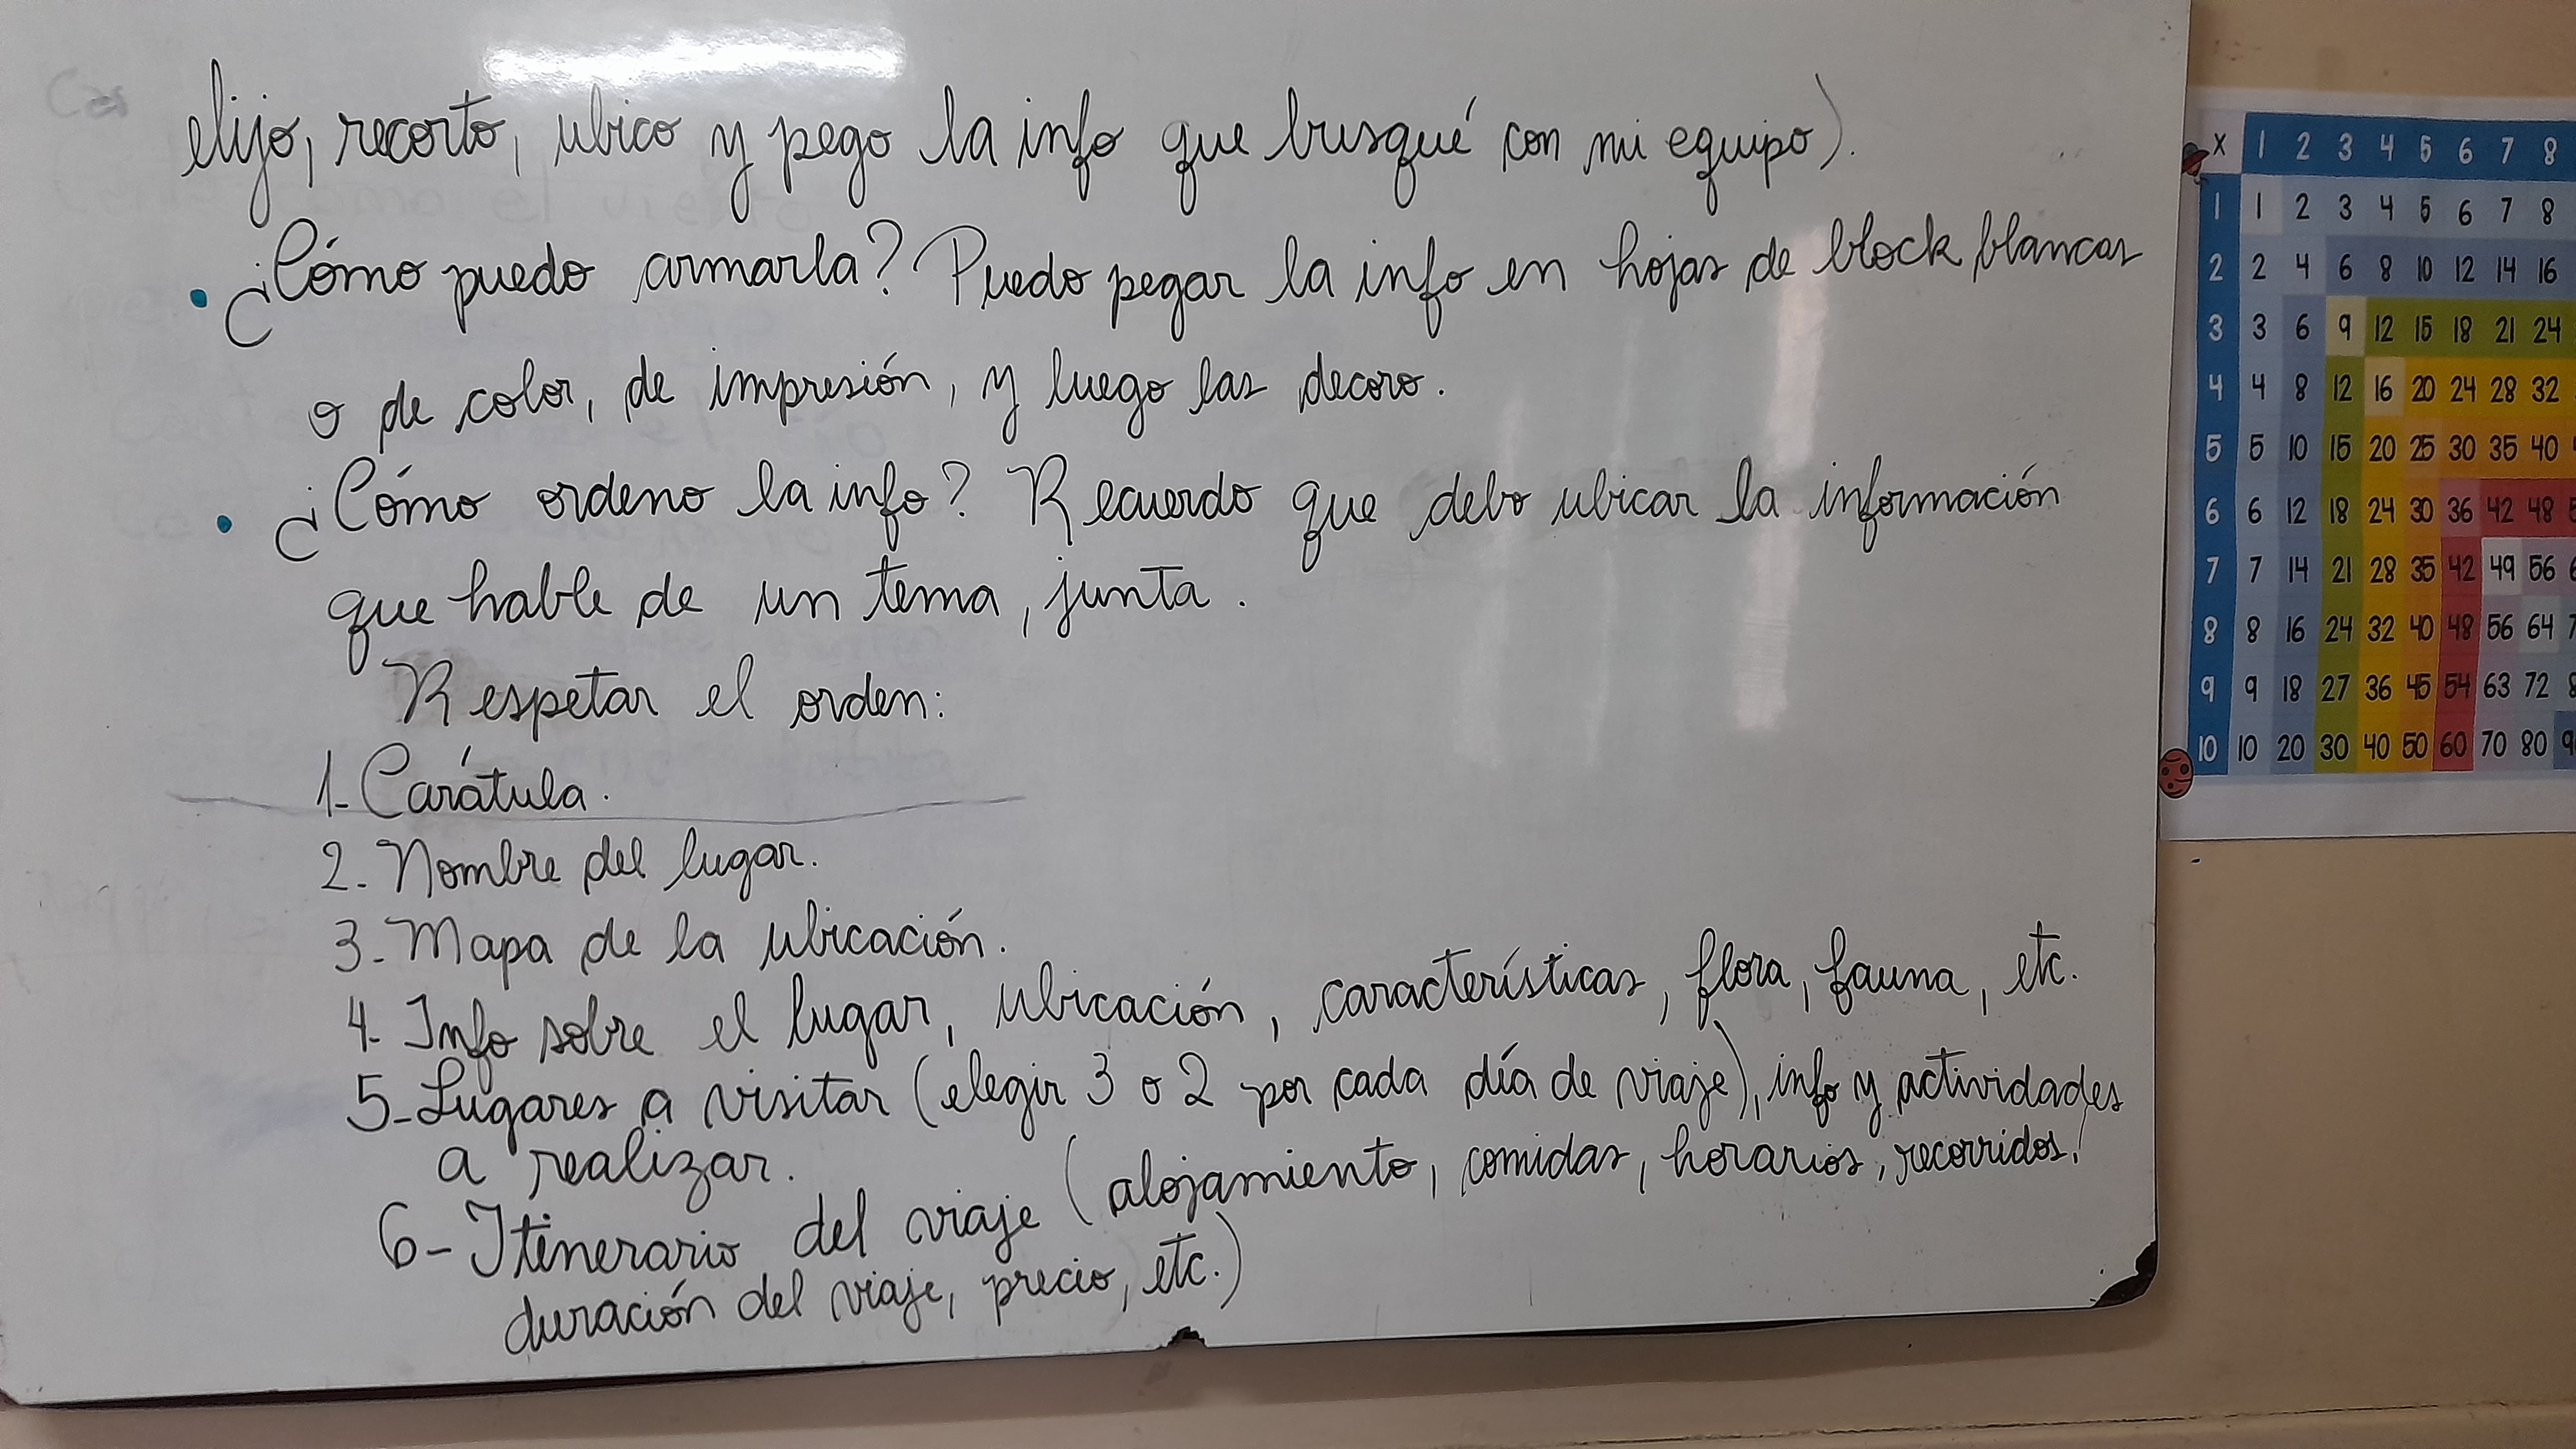 elijo, recorto, ubico y pego la info que busqué con mi equipo).
• ¿Cómo puedo armarla? Puedo pegar la info en hojas de block blancas
o de color, de impresión, y luego las decoro.
• ¿Cómo ordeno la info? Recuerdo que debo ubicar la información
que hable de un tema, junta.
Respetar el orden:
1- Carátula.
2- Nombre del lugar.
3- Mapa de la ubicación.
4- Info sobre el lugar, ubicación, características, flora, fauna, etc.
5- Lugares a visitar (elegir 3 o 2 por cada día de viaje), info y actividades
a realizar.
6- Itinerario del viaje (alojamiento, comidas, horarios, recorridos,
duración del viaje, precio, etc.)
x 1 2 3 4 5 6 7 8
1 1 2 3 4 5 6 7 8
2 2 4 6 8 10 12 14 16
3 3 6 9 12 15 18 21 24
4 4 8 12 16 20 24 28 32
5 5 10 15 20 25 30 35 40
6 6 12 18 24 30 36 42 48
7 7 14 21 28 35 42 49 56
8 8 16 24 32 40 48 56 64
9 9 18 27 36 45 54 63 72
10 10 20 30 40 50 60 70 80